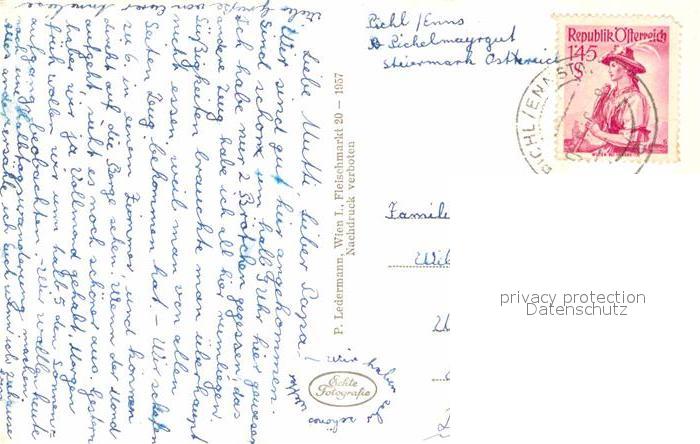 Liebe Mutti, lieber Papa!
Wir sind gut hier angekommen.
Sind schon um halb 7 Uhr hier gewesen
Ich habe nur 2 Brötchen gegessen, das
andere Zeug habe ich all hier rumliegen.
Süßigkeiten brauchte man überhaupt
nicht essen, weil man von allen
Seiten Zeug bekommen hat. - Wir schlafen
zu 6 in einem Zimmer und können
direkt auf die Berge sehen. Wenn der Mond
aufgeht, sieht es noch schöner aus. Gestern
haben wir ja Vollmond gehabt. Morgen
früh wollen wir um halb 5 den Sonnen-
aufgang beobachten. - Wir wollen heute
noch eine Halbtagswanderung machen.
Alles andere erzähle ich Euch wenn ich zuhause
Viele Grüße von Eurer Anneliese
Wir haben sehr
schönes
Wetter
P. Ledermann, Wien I., Fleischmarkt 20 — 1957
Nachdruck verboten
Echte
Fotografie
Pichl /Enns
Pichelmayrgut
Steiermark Österreich
Republik Österreich
1·45
S
PICHL/ENNS
Famili
privacy protection
Datenschutz